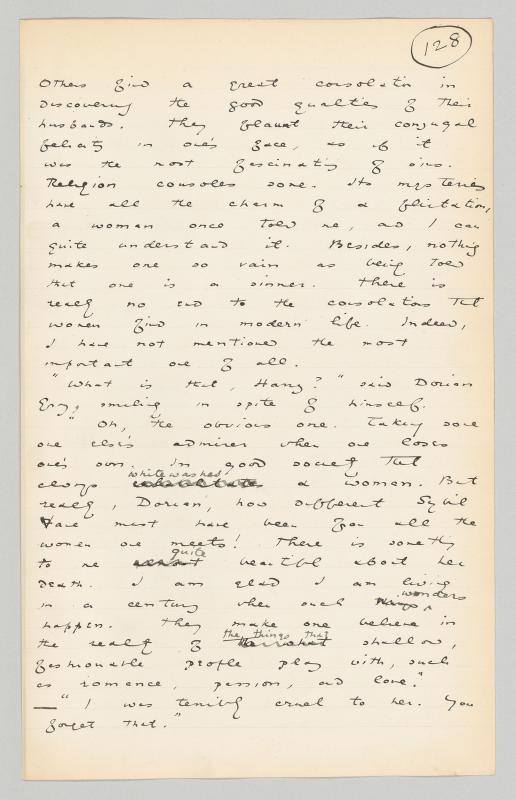 128
Others find a great consolation in
discovering the good qualities of their
husbands. They flaunt their conjugal
felicity in one's face, as if it
was the most fascinating of sins.
Religion consoles some. Its mysteries
have all the charm of a flirtation,
a woman once told me, and I can
quite understand it. Besides, nothing
makes one so vain as being told
that one is a sinner. There is
really no end to the consolations that
women find in modern life. Indeed,
I have not mentioned the most
important one of all.
"What is that, Harry?" said Dorian
Gray, smiling in spite of himself.
"Oh, the obvious one. Taking some
one else's admirer when one loses
one's own. In good society that
whitewashes
always a woman. But
really, Dorian, how different Sybil
Vane must have been from all the
women one meets! There is something
quite
to me beautiful about her
death. I am glad I am living
wonders
in a century when such
happen. They make one believe in
the things that
the reality of shallow,
fashionable people play with, such
as romance, passion, and love."
"I was terribly cruel to her. You
forget that."